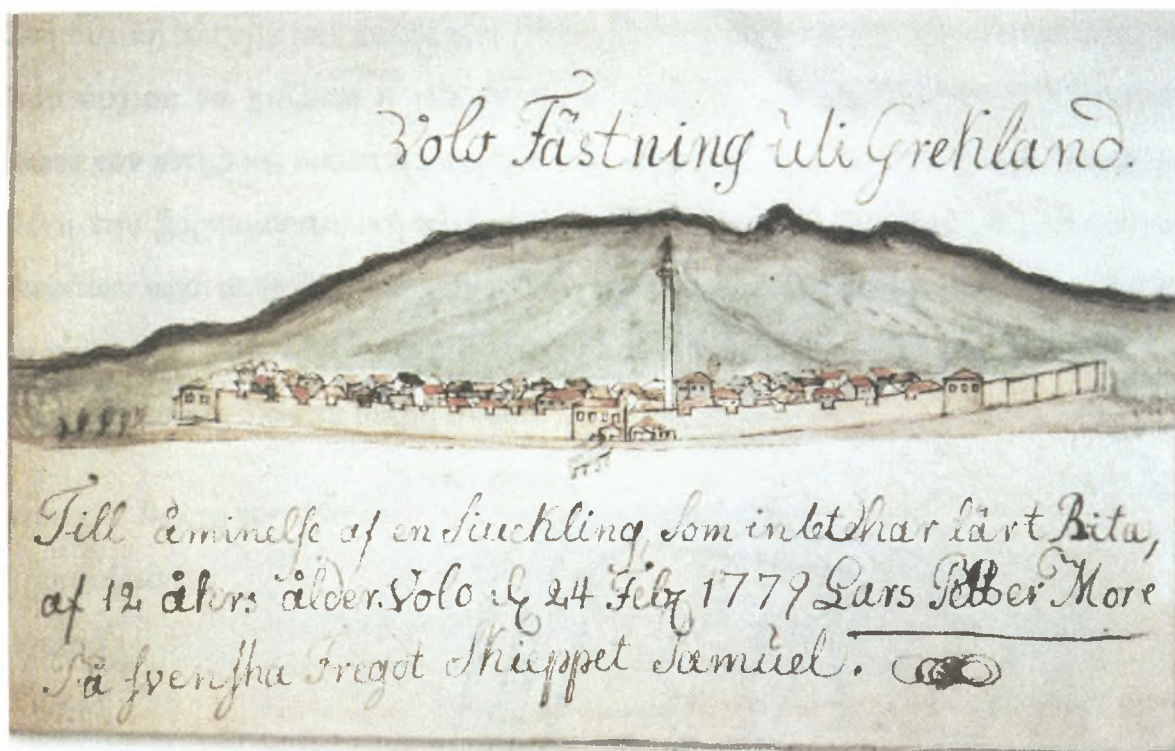 Volo Fästning uti Grekland.
Till åminelse af en siuckling som intet har lärt Rita,
af 12 åhrs ålder. Volo 24 Feb 1779 Lars Petter More
På svenska Fregot Skieppet Samuel.